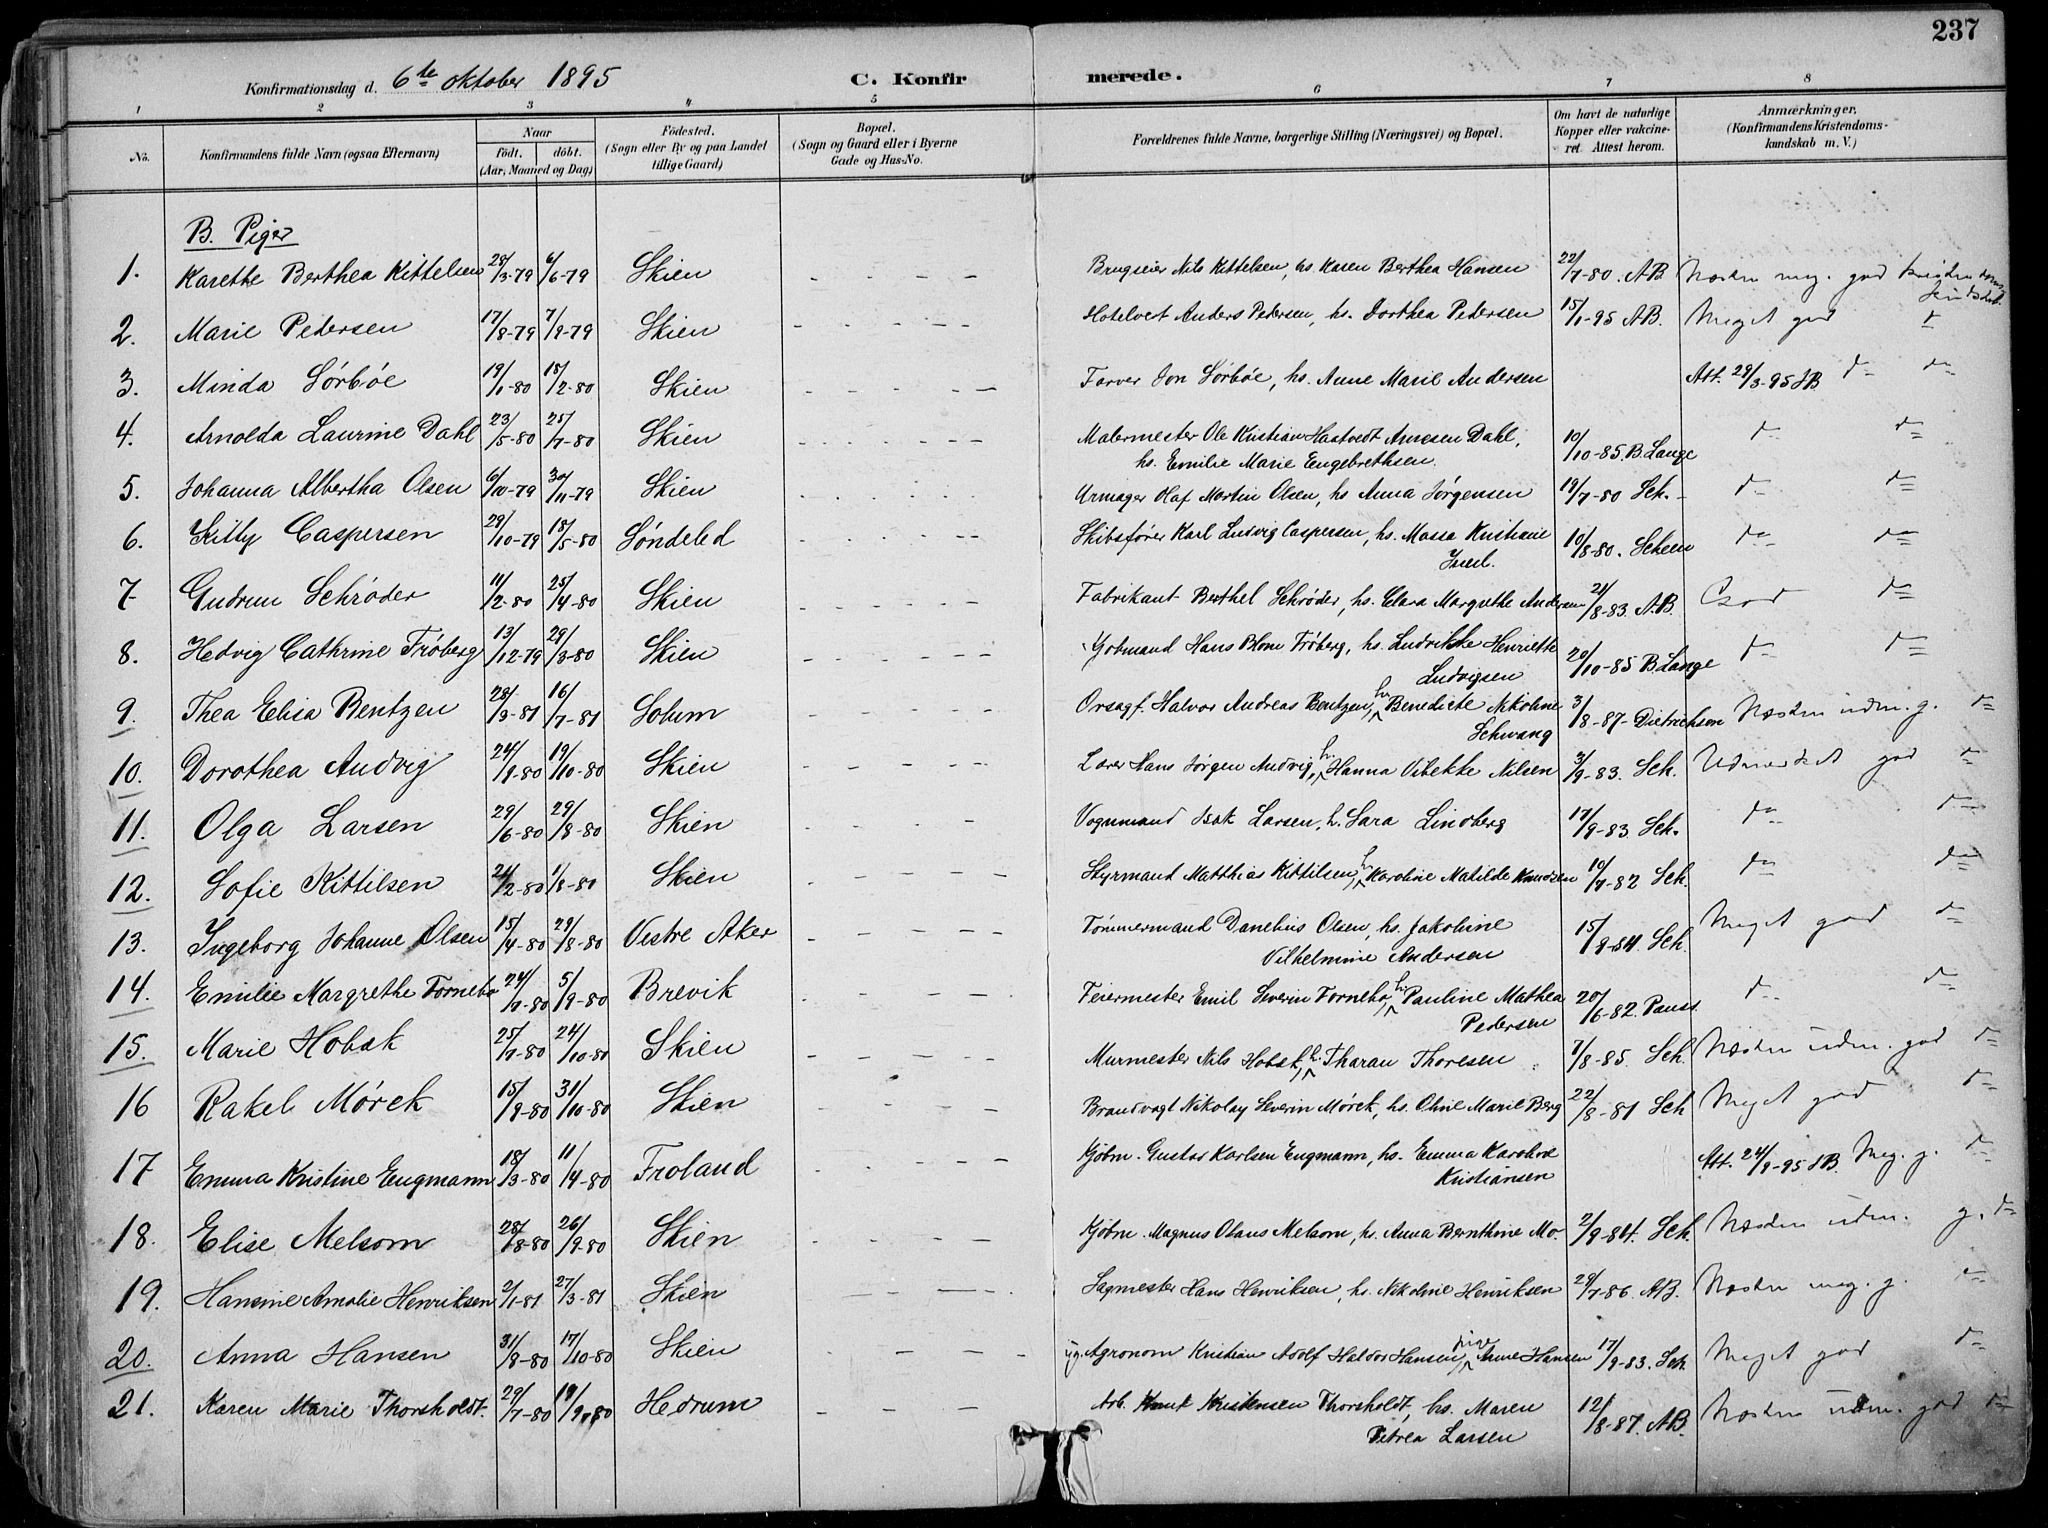 237
Konfirmationsdag d. 6te oktober 1895 C. Konfirmerede.
1 2 3 4 5 6 7 8
No. Konfirmandens fulde Navn (ogsaa Efternavn) Naar født. døbt. (Aar, Maaned og Dag) Fødested. (Sogn eller By og paa Landet tillige Gaard) Bopæl. (Sogn og Gaard eller i Byerne Gade og Hus-No. Forældrenes fulde Navne, borgerlige Stilling (Næringsvei) og Bopæl. Om havt de naturlige Kopper eller vakcineret. Attest herom. Anmærkninger, (Konfirmandens Kristendomskundskab m. V.)
B. Piger
1. Karethe Berthea Kittelsen 28/3-79 6/6-79 Skien Brugseier Nils Kittelsen, hs. Karen Berthea Hansen 22/7-80. AB Næsten meg. god kristendoms kundskab
2. Marie Pedersen 17/8-79 7/9-79 Skien Hotelvert Anders Pedersen, hs. Dorthea Pedersen 15/1-95 AB. Meget god d
3. Minda Sørbøe 19/1-80 15/2-80 Skien Farver Jon Sørbøe, hs. Anne Marie Andersen Att. 29/3-95 JB d= d=
4. Arnolda Laurine Dahl 23/5-80 25/7-80 Skien Malermester Ole Kristian Haatvedt Amesen Dahl,
hs. Emilie Marie Engebrethsen. 10/10-85. B. Lange d= d=
5. Johanna Albertha Olsen 6/10-79 30/11-79 Skien Urmager Olaf Martin Olsen, hs Anna Jørgensen 19/7-80 Sch. d= d=
6. Kitty Caspersen 29/10-79 18/5-80 Søndeled Skibsfører Karl Ludvig Caspersen, hs. Massa Kristiane
10/8-80. Scheen d= d=
7 Gudrun Schrøder 11/2-80 25/4-80 Skien Fabrikant Berthel Schrøder, hs. Clara Margrethe Andersen 21/8-83 A.B. God d=
8. Hedvig Cathrine Frøberg 13/12-79 29/3-80 Skien Gotmand Hans Blom Frøberg, hs. Ludvikke Henriette
Ludvigsen 20/10-85 B. Lange d= d=
9. Thea Elisa Bentzen 28/3-81 16/7-81 Solum Orsagf. Halvor Andreas Bentzen, hs. Benedicte Nikoline
Schwang 3/8-87- Dietrichson Næsten udm. g. d=
10. Dorothea Audvig 24/9-80 19/10-80 Skien Lærer Hans Jørgen Audvig, hs. Hanna Vibekke Nilsen 3/9-83. Sch. Udmærket god d=
11. Olga Larsen 29/6-80 29/8-80 Skien Vognmand Isak Larsen, h. Sara Lindberg 17/9-83 Sch. d= d=
12. Sofie Kittilsen 24/2-80 1/8-80 Skien Styrmand Matthias Kittilsen, hs. Karoline Matilde Knudsen 10/7-82 Sch. d= d=
13. Ingeborg Johanne Olsen 15/4-80 29/8-80 Vestre Aker Tømmermand Danelius Olsen, hs. Jakobine
Vilhelmine Andersen 15/9-84. Sch. Meget god d=
14. Emilie Margrethe Torneba 24/9-80 5/9-80 Brevik Feiermester Emil Severin Torneba, hs. Pauline Mathea
Pedersen 20/6-82. Pauss. d= d=
15. Marie Hobæk 25/7-80 24/10-80 Skien Murmester Nils Hobæk, h. Tharan Thoresen 7/8-85. Sch. Næsten udm. god d=
16 Rakel Mørck 15/9-80 31/10-80 Skien Brandvagt Nikolay Severin Mørck, hs. Oline Marie Berg 22/8-81 Sch Meget god d=
17 Emma Kristine Engmann 18/3-80 11/4-80 Froland Kjøbm. Gustav Karlsen Engmann, hs. Emma Karoline
Kristiansen Att. 24/9-95 JB. Meg. g. d=
18. Elise Melsom 28/8-80 26/9-80 Skien Kjøbm. Magnus Olaus Melsom, hs. Anna Bernthine Mo- 2/9-84. Sch. Næsten udm. g. d=
19. Hansine Amalie Henriksen 2/1-81 27/3-81 Skien Sagmester Hans Henriksen, hs. Nikoline Henriksen 29/7-86. AB. Næsten meg. g. d=
20. Anna Hansen 31/8-80 17/10-80 Skien ug. Agronom Kristian Adolf Haldor Hansen, pige Anne Hansen 17/9-83. Sch Meget god d=
21. Karen Marie Thorsholdt. 29/7-80 19/9-80 Hedrum Arb. Knut Kristensen Thorsholdt, hs. Maren
Petrea Larsen 12/8-87. AB. Næsten udm. god d=